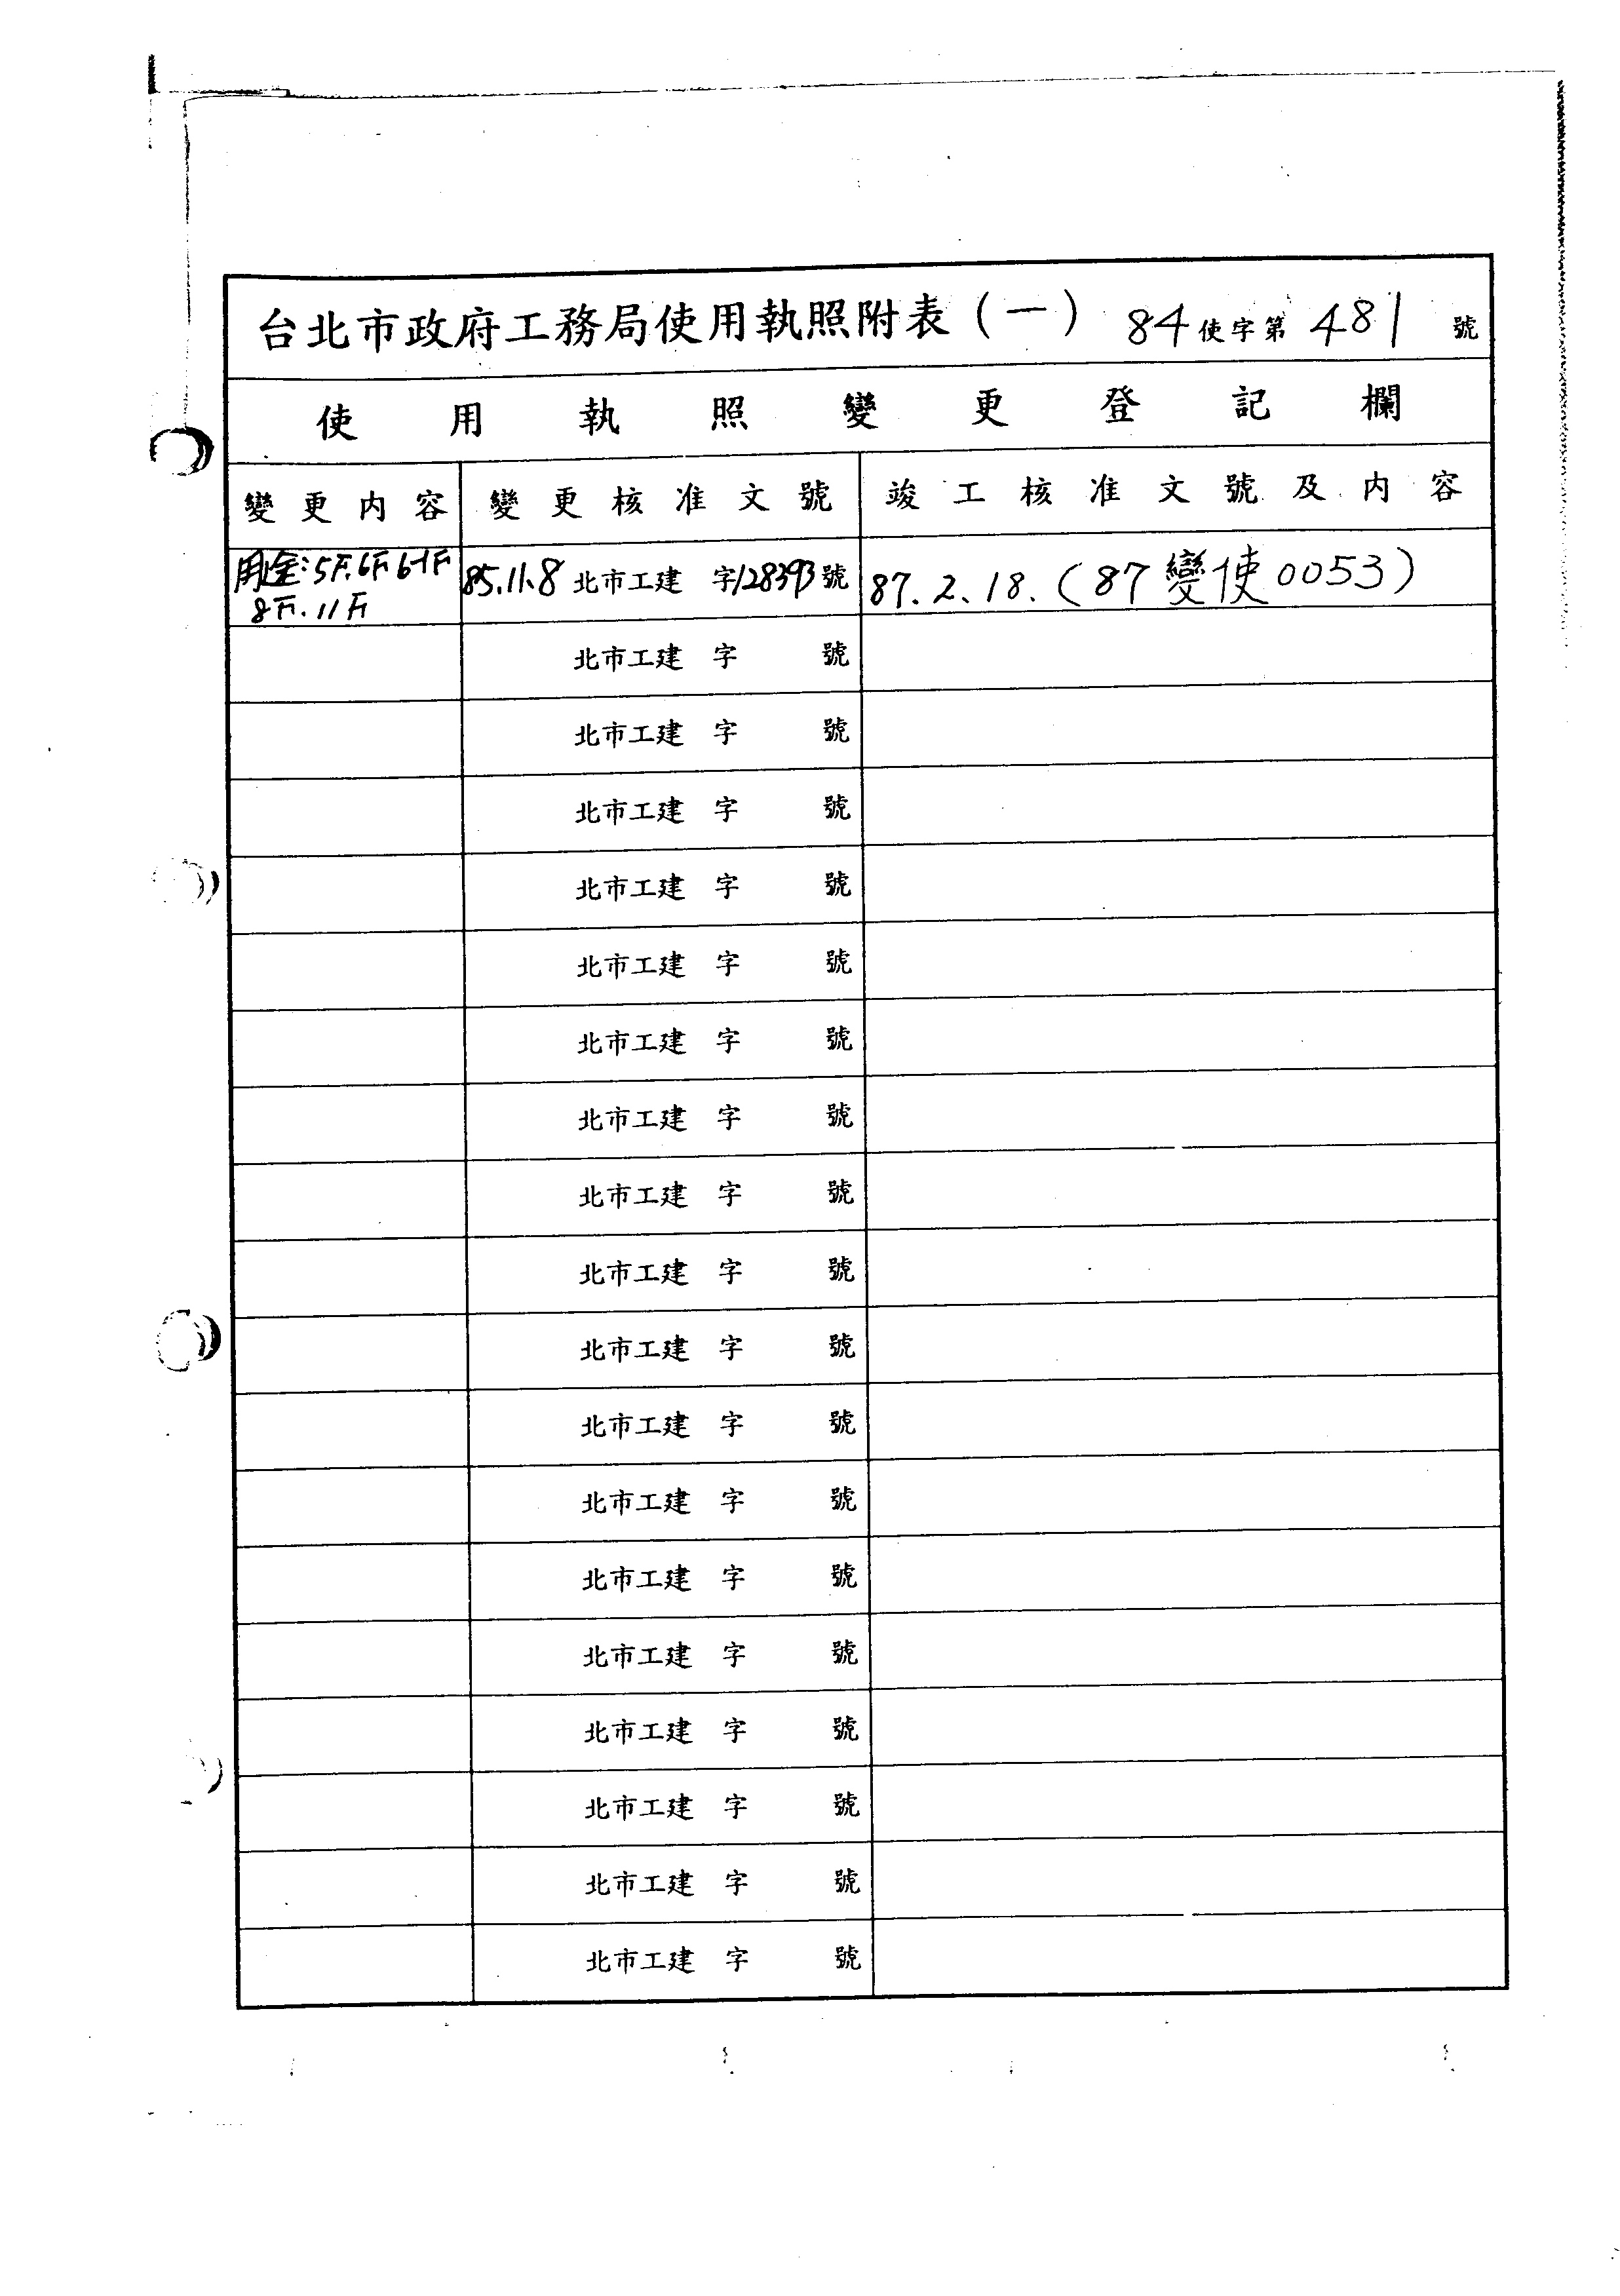 台北市政府工務局使用執照附表（一） 84使字第 481 號
使用執照變更登記欄
變更內容 變更核准文號 竣工核准文號及內容
用途:5F.6F 6-1F 85.11.8 北市工建 字128393號 87.2.18.(87變使0053)
8F.11F
北市工建 字 號
北市工建 字 號
北市工建 字 號
北市工建 字 號
北市工建 字 號
北市工建 字 號
北市工建 字 號
北市工建 字 號
北市工建 字 號
北市工建 字 號
北市工建 字 號
北市工建 字 號
北市工建 字 號
北市工建 字 號
北市工建 字 號
北市工建 字 號
北市工建 字 號
北市工建 字 號